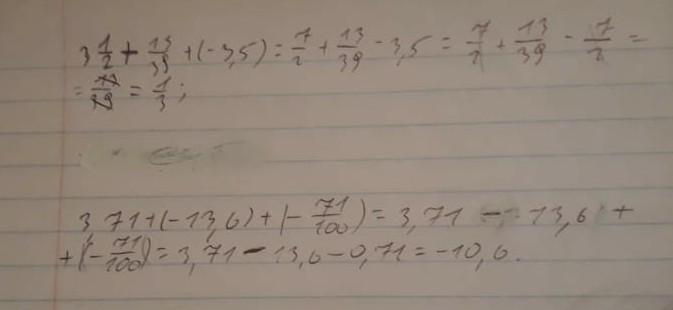 3 1/2 + 13/39 + (-3,5) = 7/2 + 13/39 - 3,5 = 7/2 + 13/39 - 7/2 =
= 13/39 = 1/3;
3,71+(-13,6)+(-71/100)= 3,71 - 13,6 +
+(-71/100)= 3,71 - 13,6 - 0,71 = -10,6.